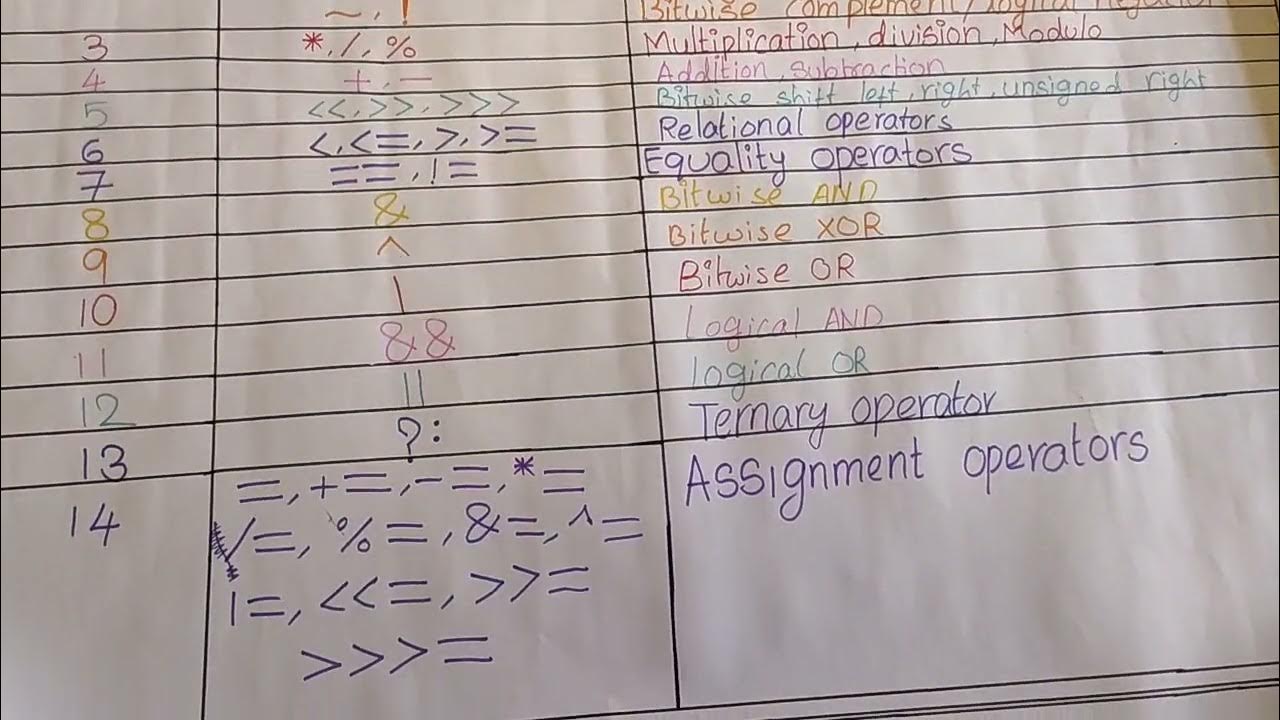 ~ , ! Bitwise complement, logical negation
3 *, /, % Multiplication, division, Modulo
4 +, - Addition, subtraction
5 <<, >>, >>> Bitwise shift left, right, unsigned right
6 <, <=, >, >= Relational operators
7 ==, != Equality operators
8 & Bitwise AND
9 ^ Bitwise XOR
10 | Bitwise OR
11 && Logical AND
12 || logical OR
13 ?: Ternary operator
14 =, +=, -=, *= Assignment operators
/=, %=, &=, ^=
|=, <<=, >>=
>>>=